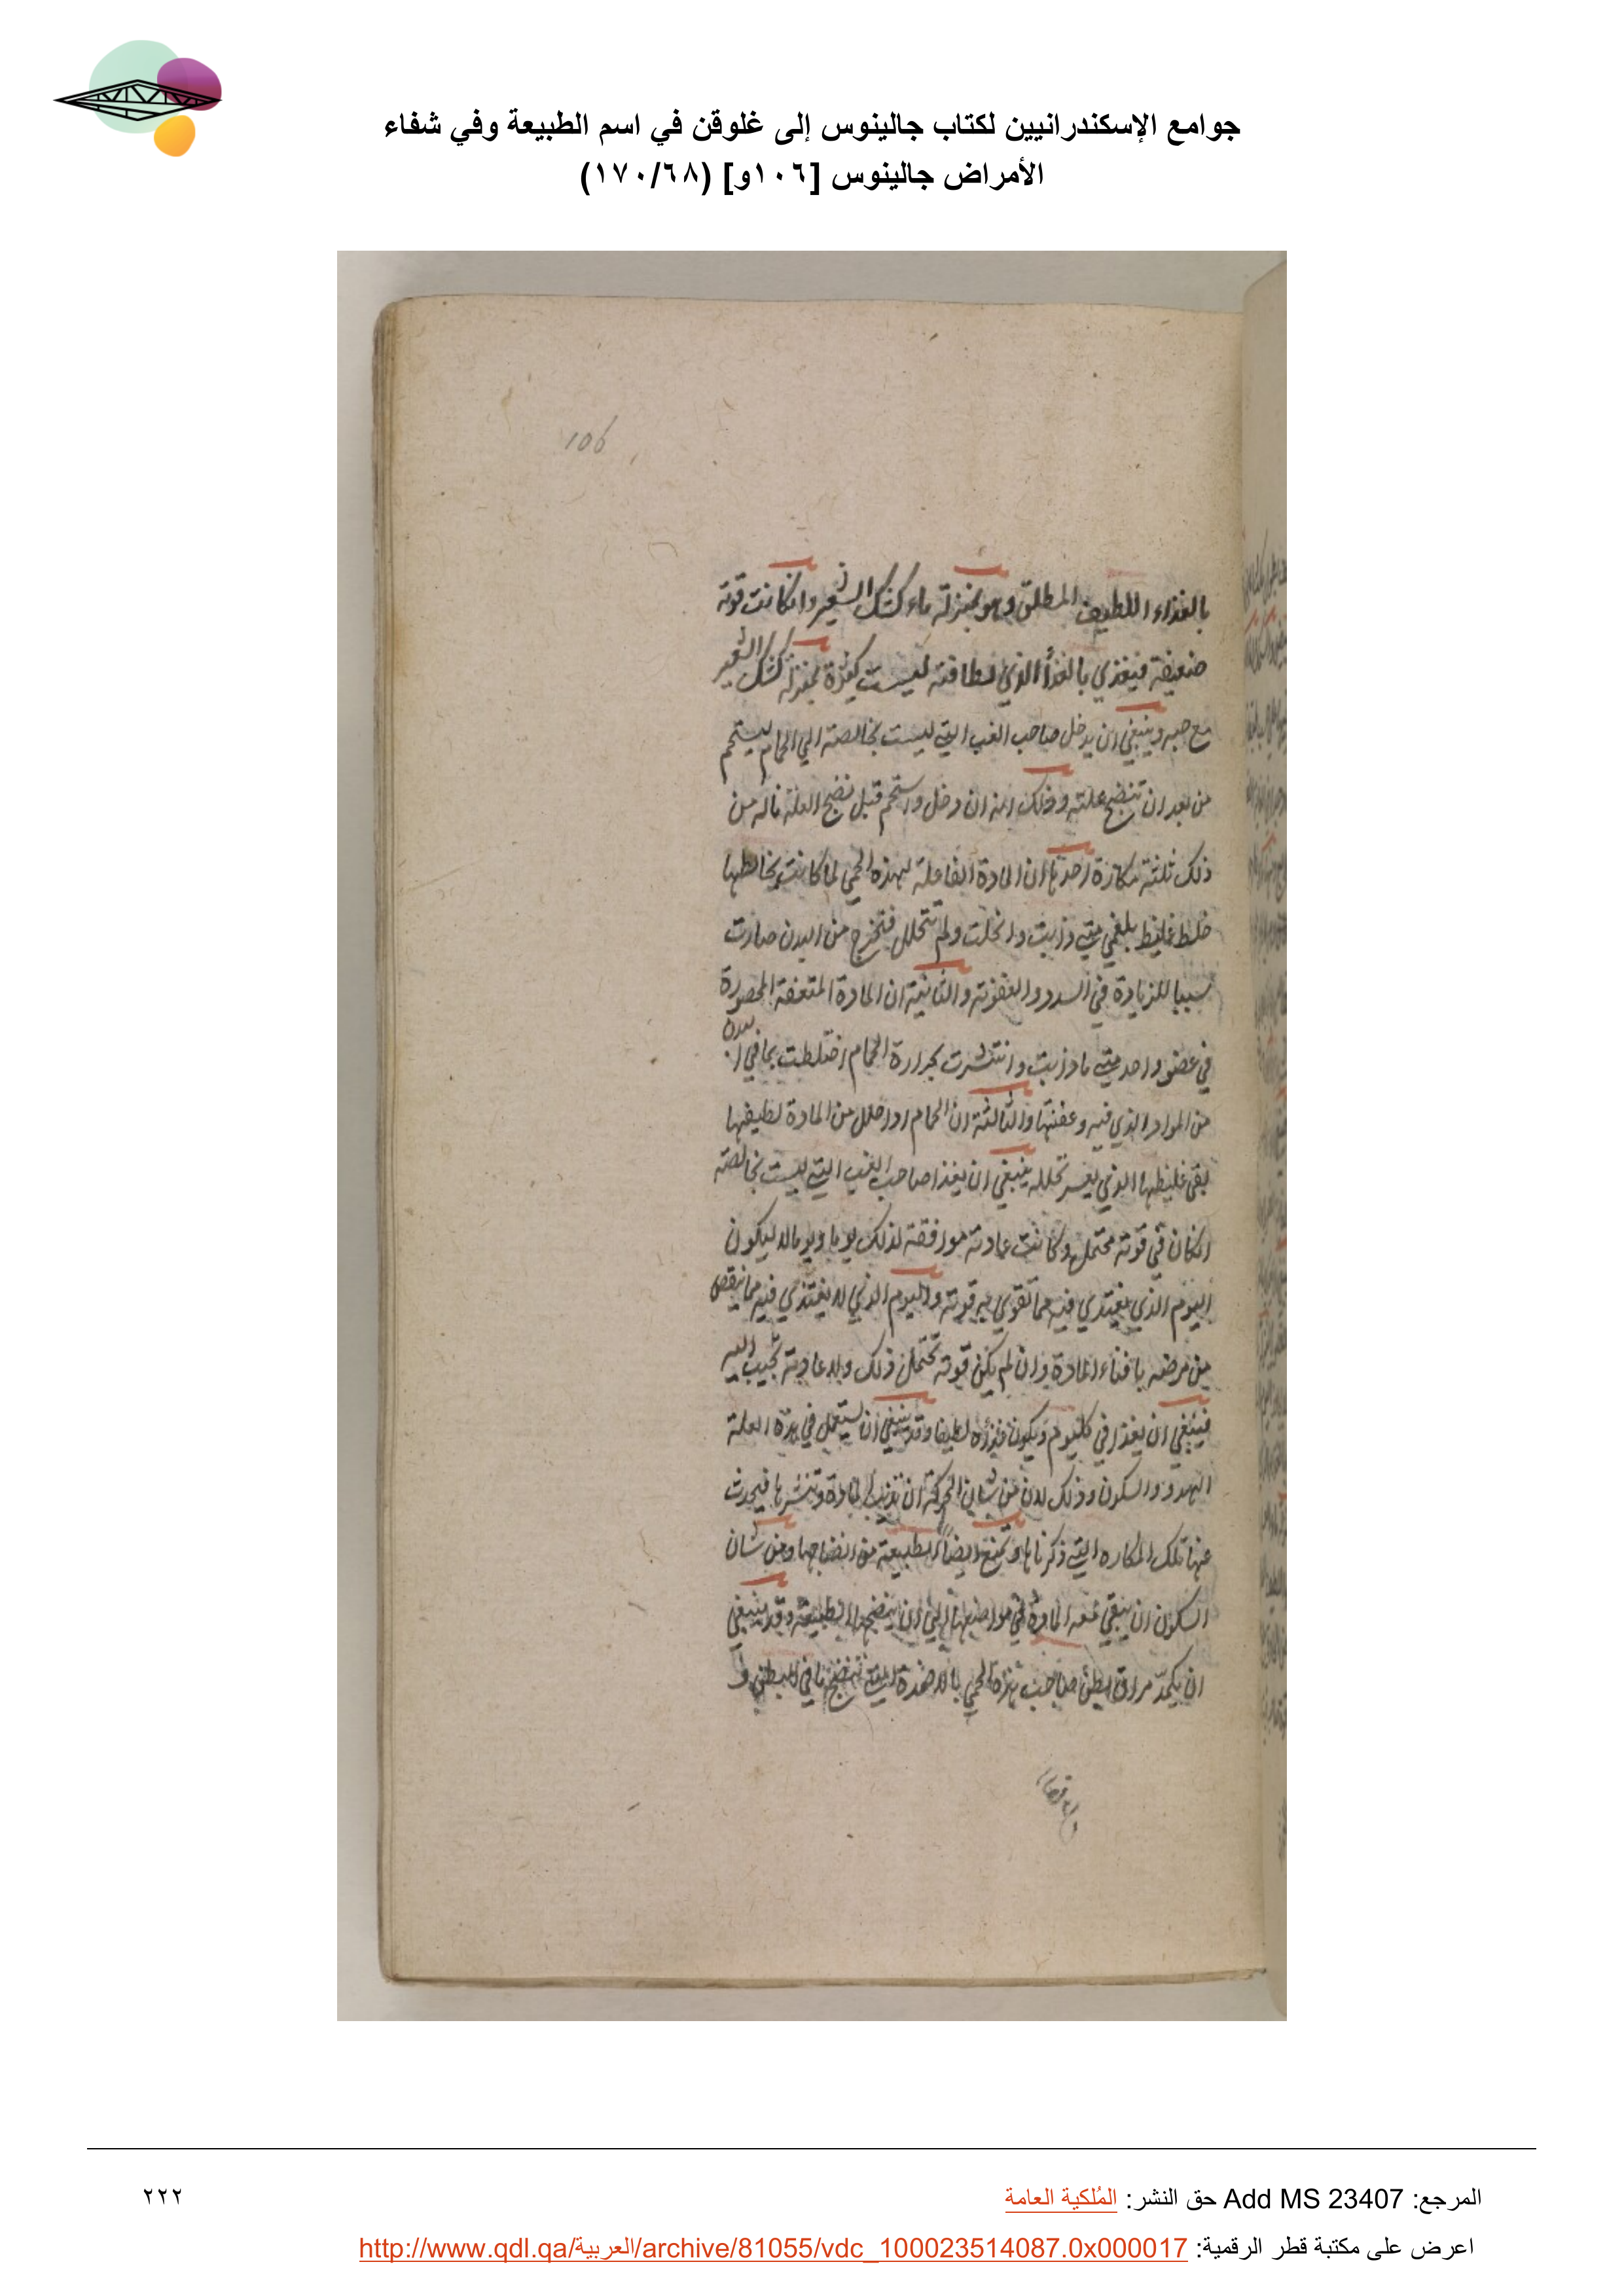 جوامع الإسكندرانيين لكتاب جالينوس إلى غلوقن في اسم الطبيعة وفي شفاء
الأمراض جالينوس [١٠٦و] (١٧٠/٦٨)
106
بالغذاء اللطيف المطلق وهو بمنزلة ماء كشك الشعير وانكانت قوته
ضعيفة فيغذي بالغذأ الذي لطافته ليست كثيرة بمنزلة كشك الشعير
مع حبه وينبغي ان يدخل صاحب الغب التي ليست بخالصة الي الحمام ليستحم
من بعد ان تنضج علته وذلك انه ان دخل واستحم قبل نضج العلة ناله من
ذلك ثلثة مكاره احدها ان المادة الفاعلة لهذه الحمي لما كانت يخالطها
خلط غليظ بلغمي متي ذابت وانحلت ولم تتحلل فتخرج من البدن صارت
سببا للزيادة في السدد والعفونة والثانية ان المادة المتعفنة المحصورة
في عضو واحد متي ما ذابت وانتشرت بحرارة الحمام اختلطت بما في البدن
من المواد الذي فيه وعفنتها والثالثة ان الحمام اذا حلل من المادة لطيفها
بقي غليظها الذي يعسر تحلله ينبغي ان يغذا صاحب الغب التي ليست بخالصة
انكان في قوته محتمل وكانت عادته موافقة لذلك يوما ويوما لا ليكون
اليوم الذي يغتذي فيه مما تقوي به قوته واليوم الذي لا يغتذي فيه مما ينقص
من مرضه بافناء المادة وان لم يكن قوته تحتمل ذلك ولا عادته تجيب اليه
فينبغي ان يغذا في كليوم ويكون غذاؤه لطيفا وقد ينبغي ان يستعمل في هذه العلة
الهدوو والسكون وذلك لان من شان الحركة ان تذيب المادة وتنشرها فيحدث
عنها تلك المكاره التي ذكرناها وتمنع ايضاً الطبيعة من انضاجها ومن شان
السكون ان يبقي معه المادة في مواضعها الي ان ينضجها الطبيعة وقد ينبغي
ان يكمّد مراق البطن صاحب هذه الحمي بالاضمدة التي تنضج ما في البطن و
المرجع: Add MS 23407 حق النشر: المُلكية العامة
٢٢٢
اعرض على مكتبة قطر الرقمية: http://www.qdl.qa/العربية/archive/81055/vdc_100023514087.0x000017